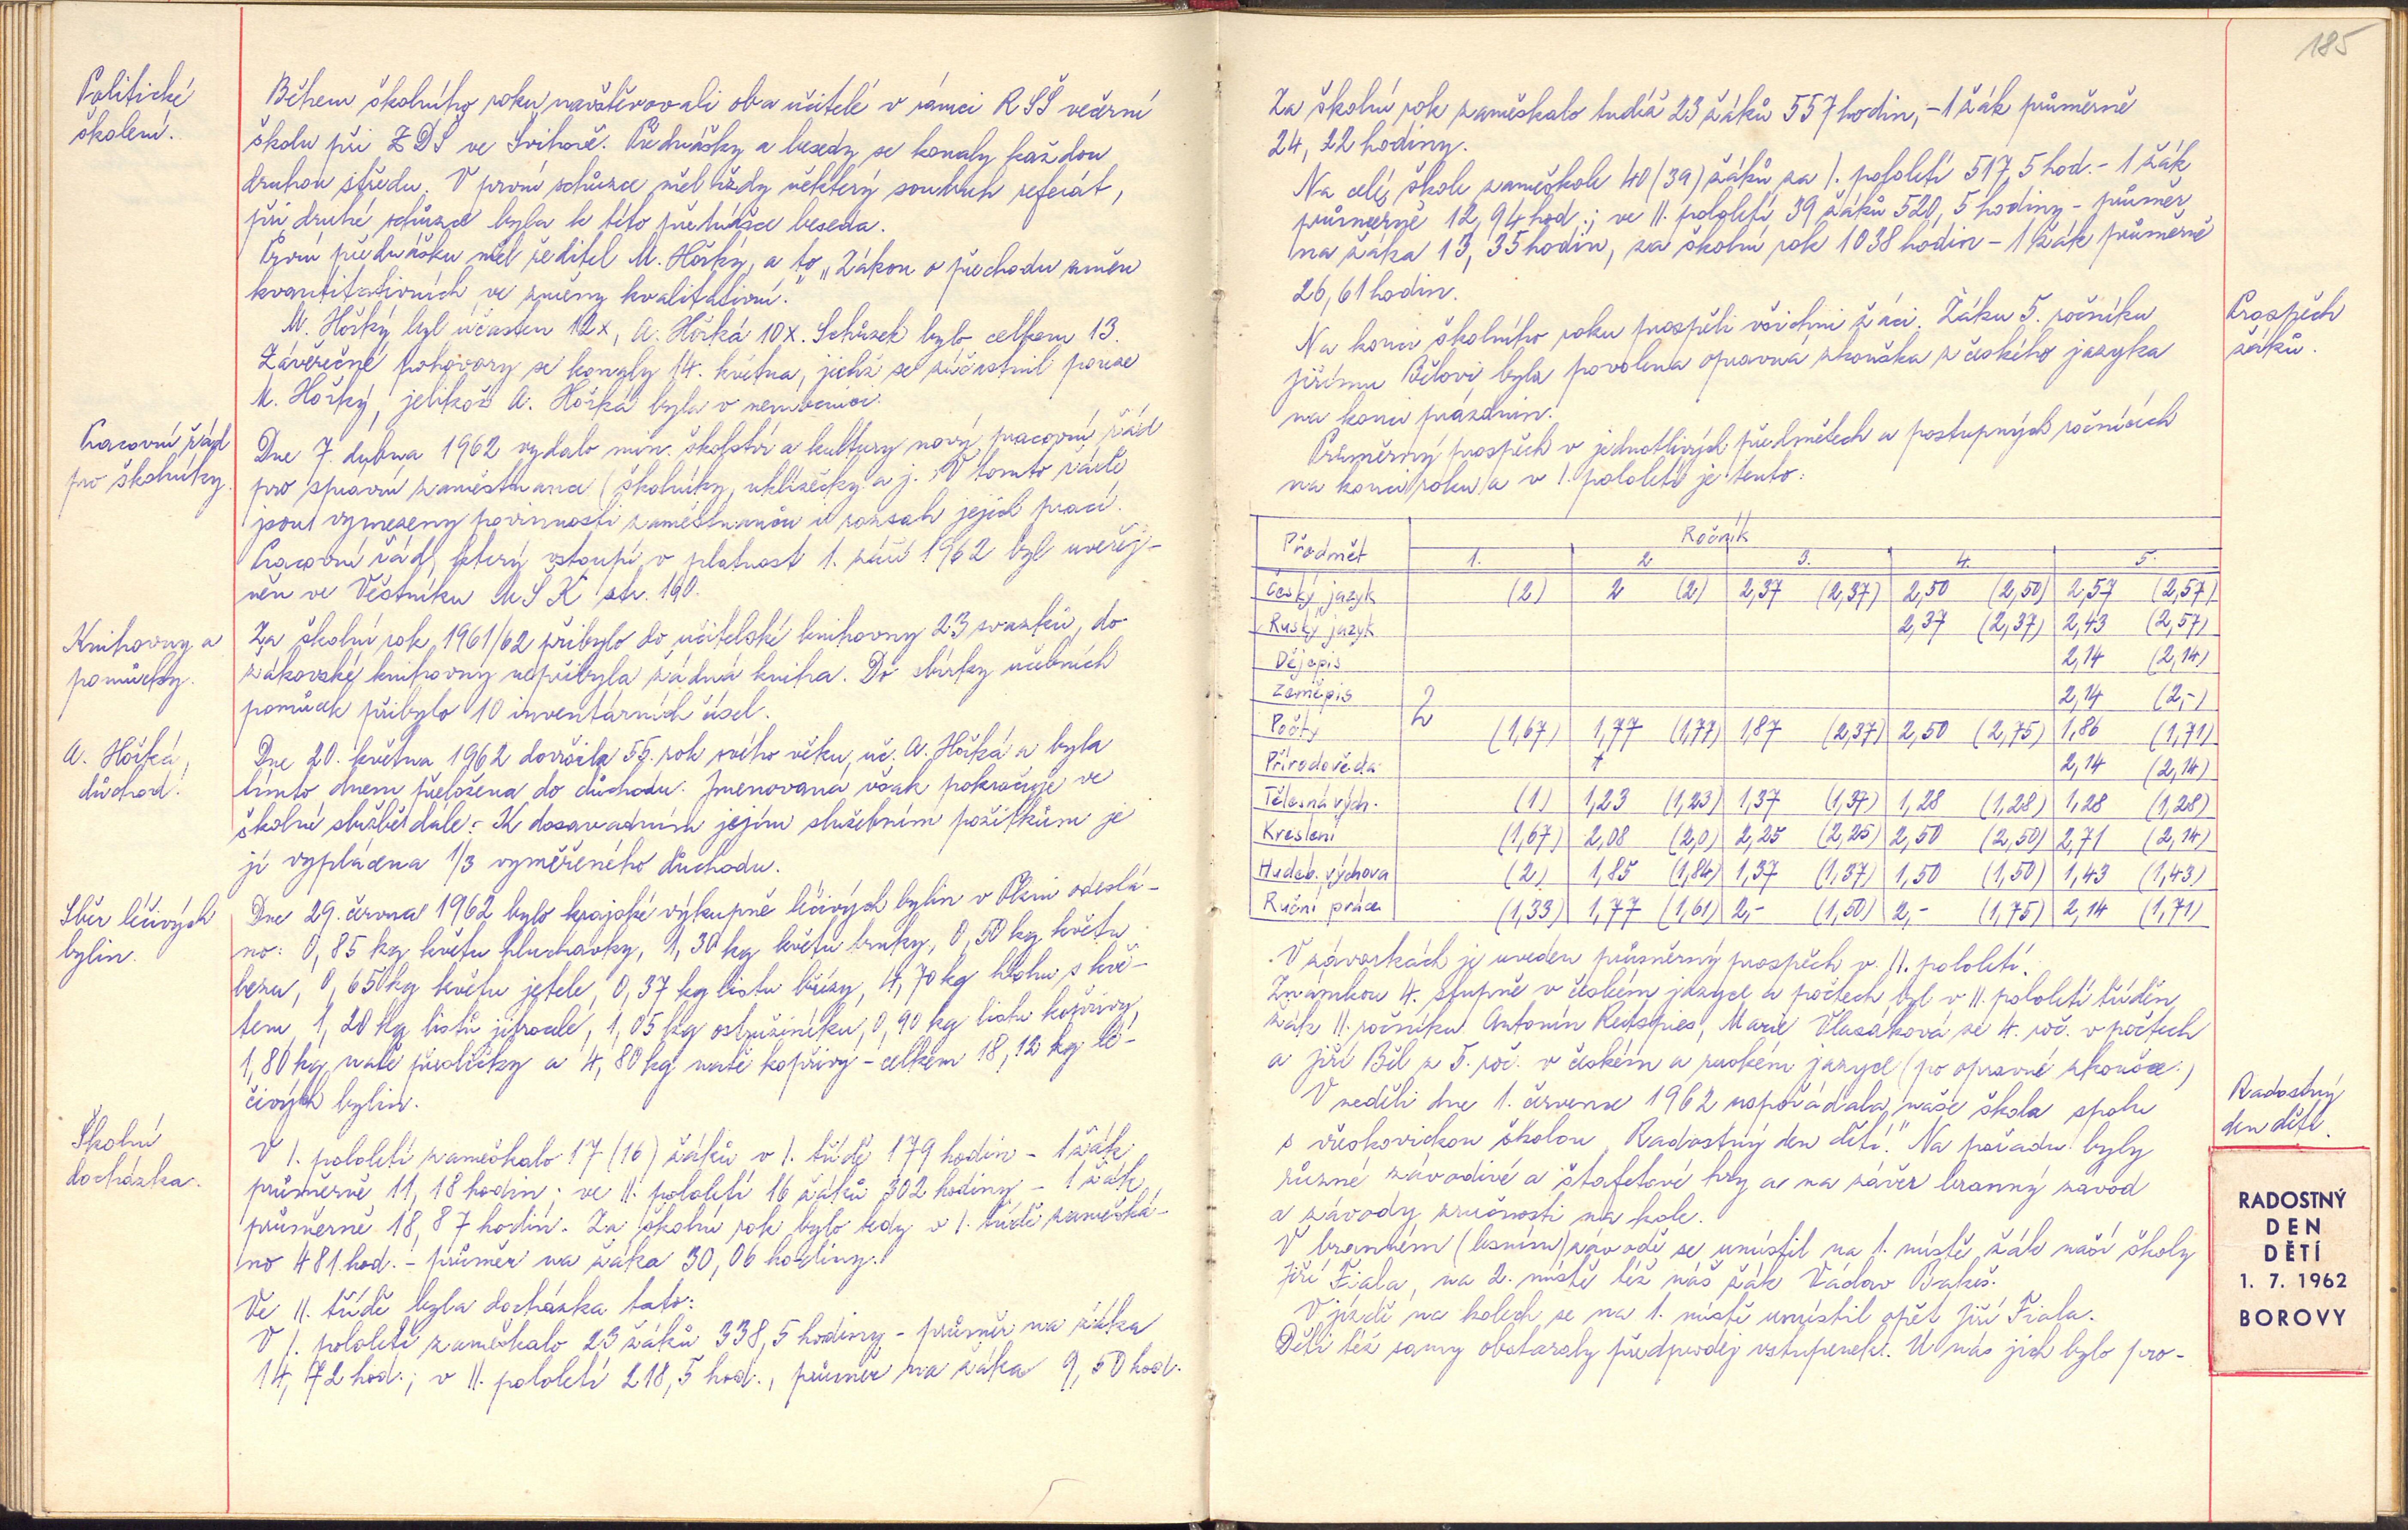 Politické
školení.
Během školního roku navštěvovali oba učitelé v rámci RSŠ večerní
školu při ZDŠ ve Švihově. Přednášky a besedy se konaly každou
druhou středu. V první schůzce měl vždy některý soudruh referát,
při druhé schůzce byla k této přednášce beseda.
První přednášku měl ředitel M. Hořký, a to „Zákon o přechodu změn
kvantitativních ve změny kvalitativní."
M. Hořký byl účasten 12x, A. Hořká 10x. Schůzek bylo celkem 13.
Závěrečné pohovory se konaly 14. května, jichž se zúčastnil pouze
M. Hořký, jelikož A. Hořká byla v nemocnici.
Pracovní řád
pro školníky.
Dne 7. dubna 1962 vydalo min. školství a kultury nový pracovní řád
pro správní zaměstnance (školníky, uklízečky a j.) V tomto řádě
jsou vymezeny povinnosti zaměstnanců i rozsah jejich prací.
Pracovní řád, který vstoupí v platnost 1. září 1962 byl uveřej-
něn ve Věstníku MŠK str. 190.
Knihovny a
pomůcky.
Za školní rok 1961/62 přibylo do učitelské knihovny 23 svazků, do
žákovské knihovny nepřibyla žádná kniha. Do sbírky učebních
pomůcek přibylo 10 inventárních čísel.
A. Hořká,
důchod!
Dne 20. května 1962 dovršila 55. rok svého věku uč. A. Hořká a byla
tímto dnem přeložena do důchodu. Jmenovaná však pokračuje ve
školné službě dále. - K dosavadním jejím služebním požitkům je
jí vyplácena 1/3 vyměřeného důchodu.
Sběr léčivých
bylin.
Dne 29. června 1962 bylo krajské výkupně léčivých bylin v Plzni odeslá-
no: 0,85 kg květu hluchavky, 1,30 kg květu trnky, 0,50 kg květu
bezu, 0,650 kg květu jetele, 0,37 kg listu břízy, 4,70 kg hlohu s kvě-
tem, 1,20 kg listů jitrocele, 1,05 kg ostružiníku, 0,90 kg listu kopřivy,
1,80 kg natě přesličky a 4,80 kg natě kopřivy - celkem 18,12 kg lé-
čivých bylin.
Školní
docházka.
V I. pololetí zameškalo 17 (16) žáků v I. třídě 179 hodin - 1 žák
průměrně 11,18 hodin; ve II. pololetí 16 žáků 302 hodiny - 1 žák
průměrně 18,87 hodin. Za školní rok bylo tedy v I. třídě zamešká-
no 481 hod. - průměr na žáka 30,06 hodiny.
Ve II. třídě byla docházka tato:
V I. pololetí zameškalo 23 žáků 338,5 hodiny - průměr na žáka
14,72 hod.; v II. pololetí 218,5 hod., průměr na žáka 9,50 hod.
185
Za školní rok zameškalo tudíž 23 žáků 557 hodin, - 1 žák průměrně
24,22 hodiny.
Na celé škole zameškalo 40 (39) žáků za I. pololetí 517,5 hod. - 1 žák
průměrně 12,94 hod.; ve II. pololetí 39 žáků 520,5 hodiny - průměr
na žáka 13,35 hodin, za školní rok 1038 hodin - 1 žák průměrně
26,61 hodin.
Prospěch
žáků.
Na konci školního roku prospěli všichni žáci. Žáku 5. ročníku
Jiřímu Bělovi byla povolena opravná zkouška z českého jazyka
na konci prázdnin.
Průměrný prospěch v jednotlivých předmětech a postupných ročnících
na konci roku a v I. pololetí je tento:
Předmět Ročník
1. 2. 3. 4. 5.
Český jazyk (2) 2 (2) 2,37 (2,37) 2,50 (2,50) 2,57 (2,57)
Ruský jazyk 2,37 (2,37) 2,43 (2,57)
Dějepis 2,14 (2,14)
Zeměpis 2,14 (2,-)
Počty 2 (1,67) 1,77 (1,77) 1,87 (2,37) 2,50 (2,75) 1,86 (1,71)
Přírodověda 2,14 (2,14)
Tělesná vých. (1) 1,23 (1,23) 1,37 (1,37) 1,28 (1,28) 1,28 (1,28)
Kreslení (1,67) 2,08 (2,0) 2,25 (2,25) 2,50 (2,50) 2,71 (2,14)
Hudeb. výchova (2) 1,85 (1,84) 1,37 (1,37) 1,50 (1,50) 1,43 (1,43)
Ruční práce (1,33) 1,77 (1,61) 2,- (1,50) 2,- (1,75) 2,14 (1,71)
V závorkách je uveden průměrný prospěch v II. pololetí.
Známkou 4. stupně v českém jazyce a počtech byl v II. pololetí tříděn
žák II. ročníku Antonín, Marie Vlasáková ze 4. roč. v počtech
a Jiří Běl z 5. roč. v českém a ruském jazyce (po opravné zkoušce.)
Radostný
den dětí.
V neděli dne 1. července 1962 uspořádala naše škola spolu
s vřeskovickou školou „Radostný den dětí." Na pořadu byly
různé závodivé a štafetové hry a na závěr branný závod
a závody zručnosti na kole.
V branném (lesním) závodě se umístil na 1. místě žák naší školy
Jiří Fiala, na 2. místě též náš žák Václav Bakeš.
V jízdě na kolech se na 1. místě umístil opět Jiří Fiala.
Děti též samy obstaraly předprodej vstupenek. U nás jich bylo pro-
RADOSTNÝ
DEN
DĚTÍ
1. 7. 1962
BOROVY